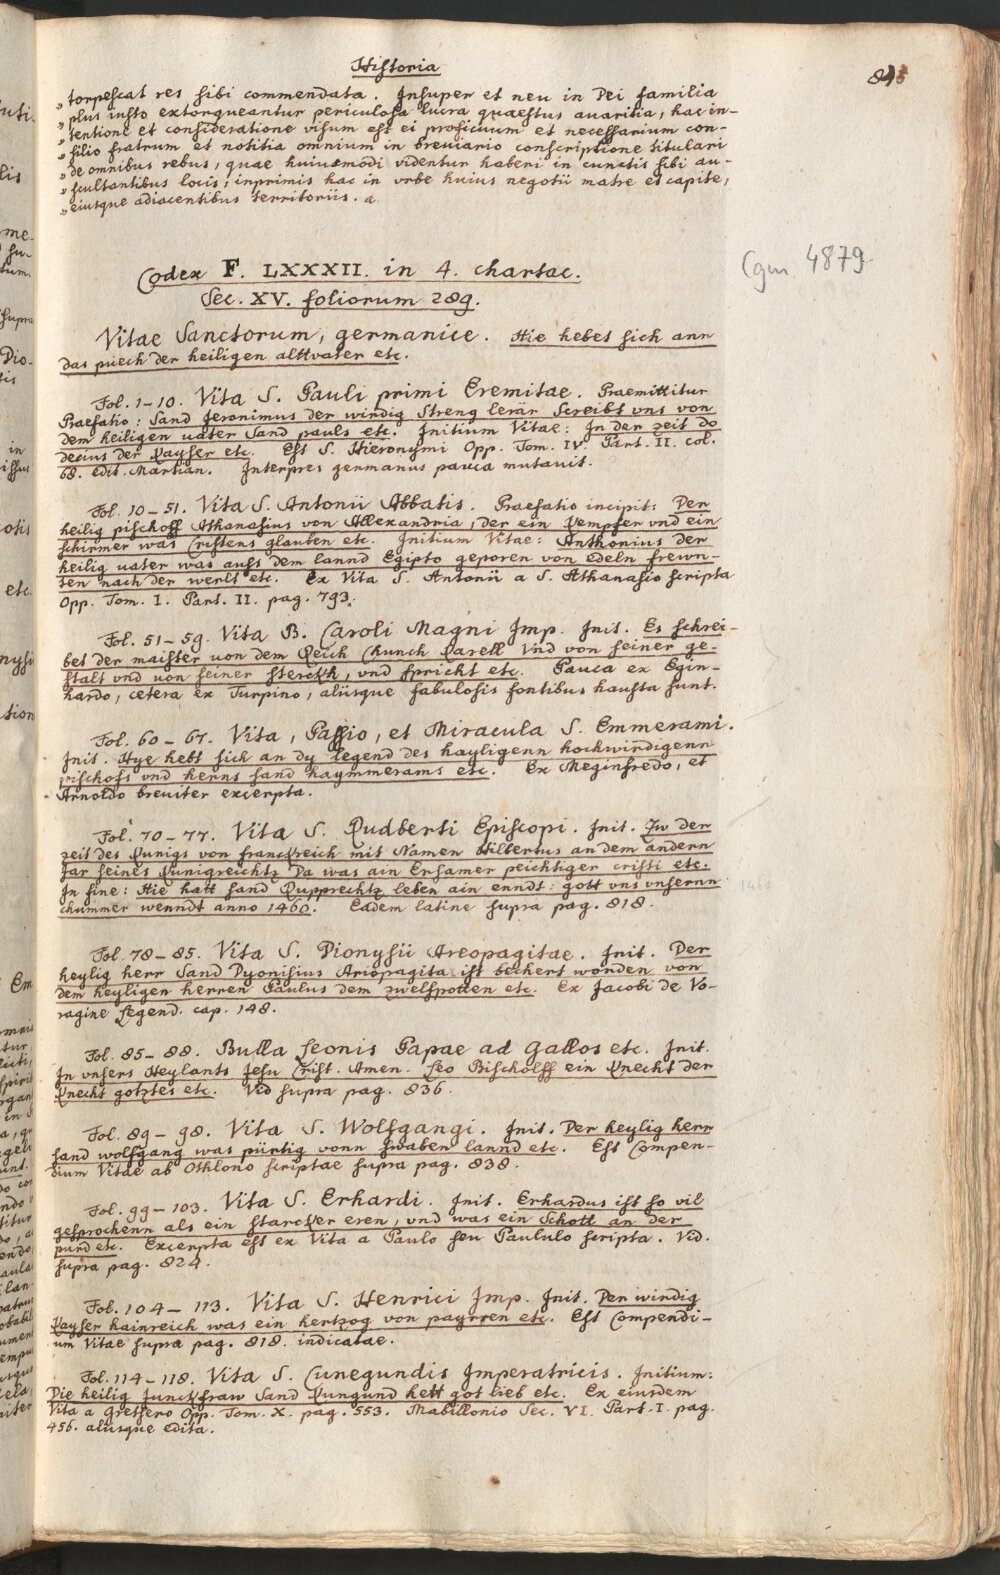 Historia
845
„ torpescat res sibi commendata. Insuper et neu in Dei familia
„ plus iusto extorqueantur periculosa lucra quaestus auaritia, hac in-
„ tentione et consideratione visum est ei proficuum et necessarium con-
„ silio fratrum et notitia omnium in breuiario conscriptione titulari
„ de omnibus rebus, quae huiusmodi videntur haberi in cunctis sibi au-
„ scultantibus locis, inprimis hac in vrbe huius negotii matre et capite,
„ eiusque adiacentibus territoriis. a
Codex F. LXXXII. in 4. chartac.
Cgm. 4879
Sec. XV. foliorum 289.
Vitae Sanctorum, germanice. Hie hebet sich ann
das puech der heiligen alttvater etc.
Fol. 1-10. Vita S. Pauli primi Eremitae. Praemittitur
Praefatio: Sand Jeronimus der wirdig Streng lerär Screibt vns von
dem heiligen uater Sand pauls etc. Initium Vitae: In der zeit do
decius der Kayser etc. Est S. Hieronymi Opp. Tom. IV. Part. II. col.
68. edit. Martian. Interpres germanus pauca mutauit.
Fol. 10-51. Vita S. Antonii Abbatis. Praefatio incipit: Der
heilig pischoff Athanasius von Allexandria, der ein Kempfer vnd ein
schirmer was Cristens glauben etc. Initium Vitae: Anthonius der
heilig uater was auss dem lannd Egipto geporen von edeln frewn-
ten nach der werlt etc. Ex Vita S. Antonii a S. Athanasio scripta
Opp. Tom. I. Part. II. pag. 793.
Fol. 51-59. Vita B. Caroli Magni Imp. Init. Es schrei-
bet der maister von dem Reich Chunch Karell Vnd von seiner ge-
stalt vnd von seiner sterckh, vnd spricht etc. Pauca ex Egin-
hardo, cetera ex Turpino, aliisque fabulosis fontibus hausta sunt.
Fol. 60-67. Vita, Passio, et Miracula S. Emmerami.
Init. Hye hebt sich an dy legend des hayligenn hochwirdigenn
pischofs vnd herns sand haymmerams etc. Ex Meginfredo, et
Arnoldo breuiter excerpta.
Fol. 70-77. Vita S. Rudberti Episcopi. Init. Zw der
zeit des Kunigs von franckreich mit Namen Hilbertus an dem andern
Jar seines Kunigreichtz Da was ain Ersamer peichtiger cristi etc.
In fine: Hie hatt sand Rupprechtz leben ain enndt: gott vns vnsernn
chummer wenndt anno 1460. Eadem latine supra pag. 818.
1460
Fol. 78-85. Vita S. Dionysii Areopagitae. Init. Der
heylig herr Sand Dyonisius Ariopagita ist bechert worden von
dem heyligen herren Paulus dem zwelfpotten etc. Ex Jacobi de Vo-
ragine Legend. cap. 148.
Fol. 85-88. Bulla Leonis Papae ad Gallos etc. Init.
In vnsers Heylants Jesu Crist. Amen. Leo Bischolff ein Knecht der
Knecht gotztes etc. Vid supra pag. 836.
Fol. 89-98. Vita S. Wolfgangi. Init. Der heylig herr
sand wolfgang was pürtig vonn swaben lannd etc. Est Compen-
dium Vitae ab Othlono scriptae supra pag. 838.
Fol. 99-103. Vita S. Erhardi. Init. Erhardus ist so vil
gesprochenn als ein starcker eren, vnd was ein Schott an der
purd etc. Excerpta est ex Vita a Paulo seu Paululo scripta. Vid.
supra pag. 824.
Fol. 104-113. Vita S. Henrici Imp. Init. Der wirdig
Kayser hainreich was ein hertzog von payrren etc. Est Compendi-
um Vitae supra pag. 818. indicatae.
Fol. 114-118. Vita S. Cunegundis Imperatricis. Initium:
Die heilig Junckfraw Sand Kungund hett got lieb etc. Ex eiusdem
Vita a Gretsero Opp. Tom. X. pag. 553. Mabillonio Sec. VI. Part. I. pag.
456. aliisque edita.